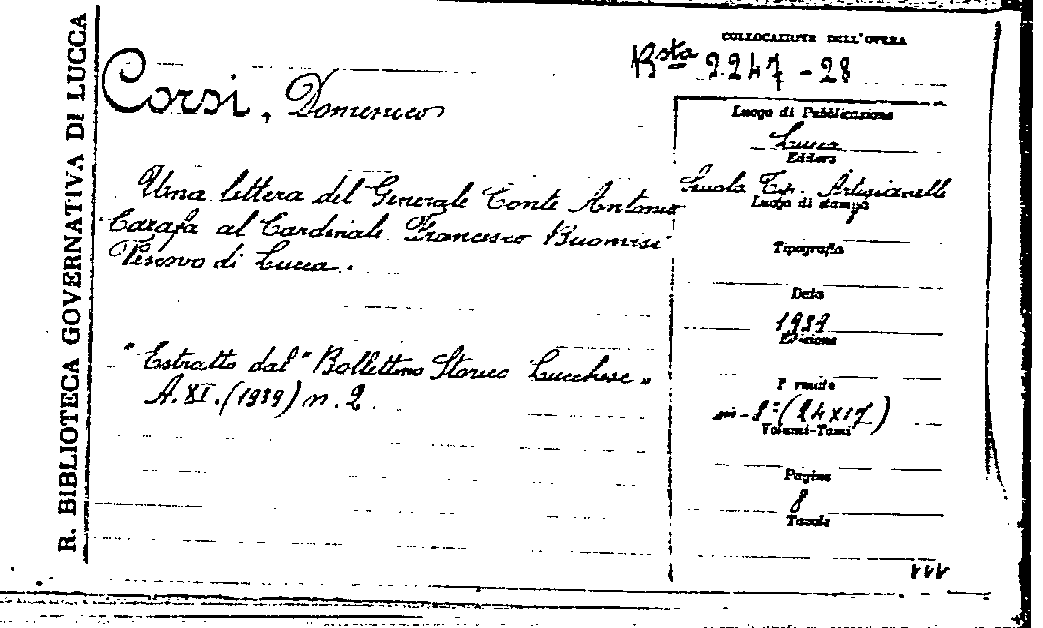 R. BIBLIOTECA GOVERNATIVA DI LUCCA
COLLOCAZIONE DELL'OPERA
Bsta 2247-28
Corsi, Domenico
Una lettera del Generale Conte Antonio
Carafa al Cardinale Francesco Buonvisi
Vescovo di Lucca.
"Estratto dal "Bollettino Storico Lucchese"
A. XI. (1939) n. 2
Luogo di Pubblicazione
Lucca
Editore
Scuola Tip. Artigianelli
Luogo di stampa
Tipografia
Data
1939
Edizione
Formato
in-8° (24x17)
Volumi-Tomi
Pagine
8
Tavole